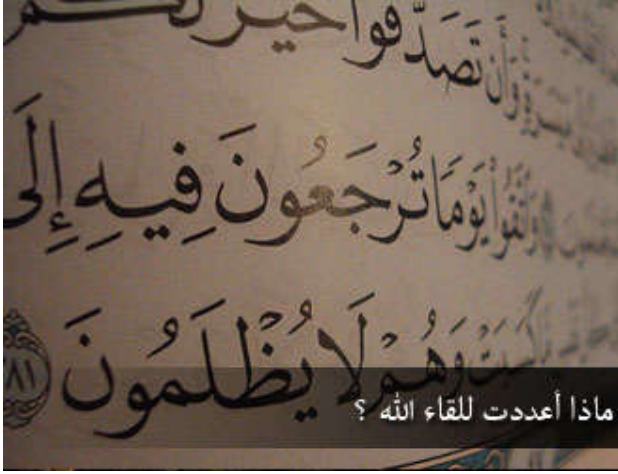 وَأَن تَصَدَّقُوا۟ خَيْرٌ لَّكُمْ
وَٱتَّقُوا۟ يَوْمًا تُرْجَعُونَ فِيهِ إِلَى
كَسَبَتْ وَهُمْ لَا يُظْلَمُونَ ٨١
ماذا أعددت للقاء الله ؟